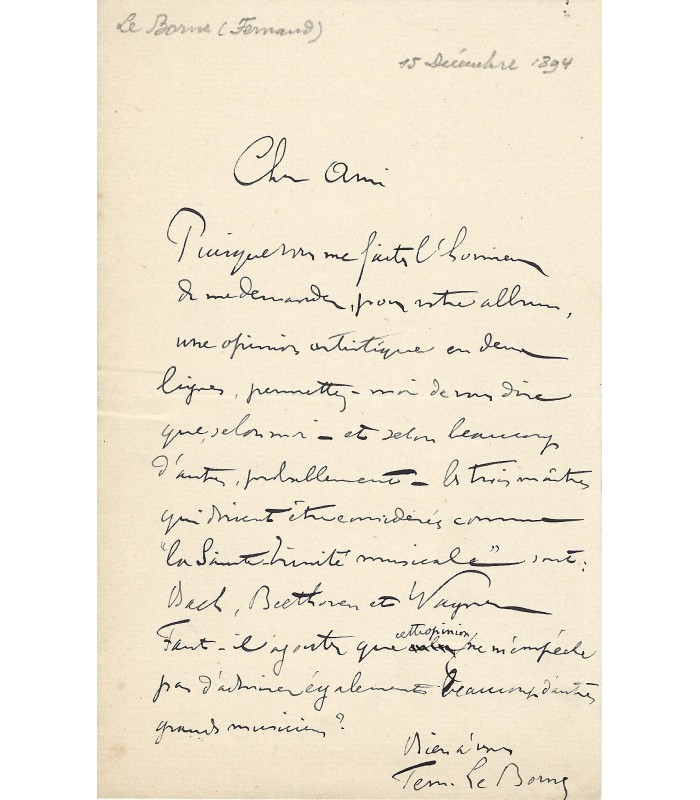 Le Borne (Fernand)
15 Décembre 1894
Cher Ami
Puisque vous me faites l'honneur
de me demander, pour votre album,
une opinion artistique en deux
lignes, permettez-moi de vous dire
que, selon moi – et selon beaucoup
d'autres, probablement – les trois maîtres
qui doivent être considérés comme
"la Sainte-Trinité musicale" sont:
Bach, Beethoven et Wagner
Faut-il ajouter que cette opinion ne m'empêche
pas d'admirer également beaucoup d'autres
grands musiciens?
Bien à vous
Fern. Le Borne